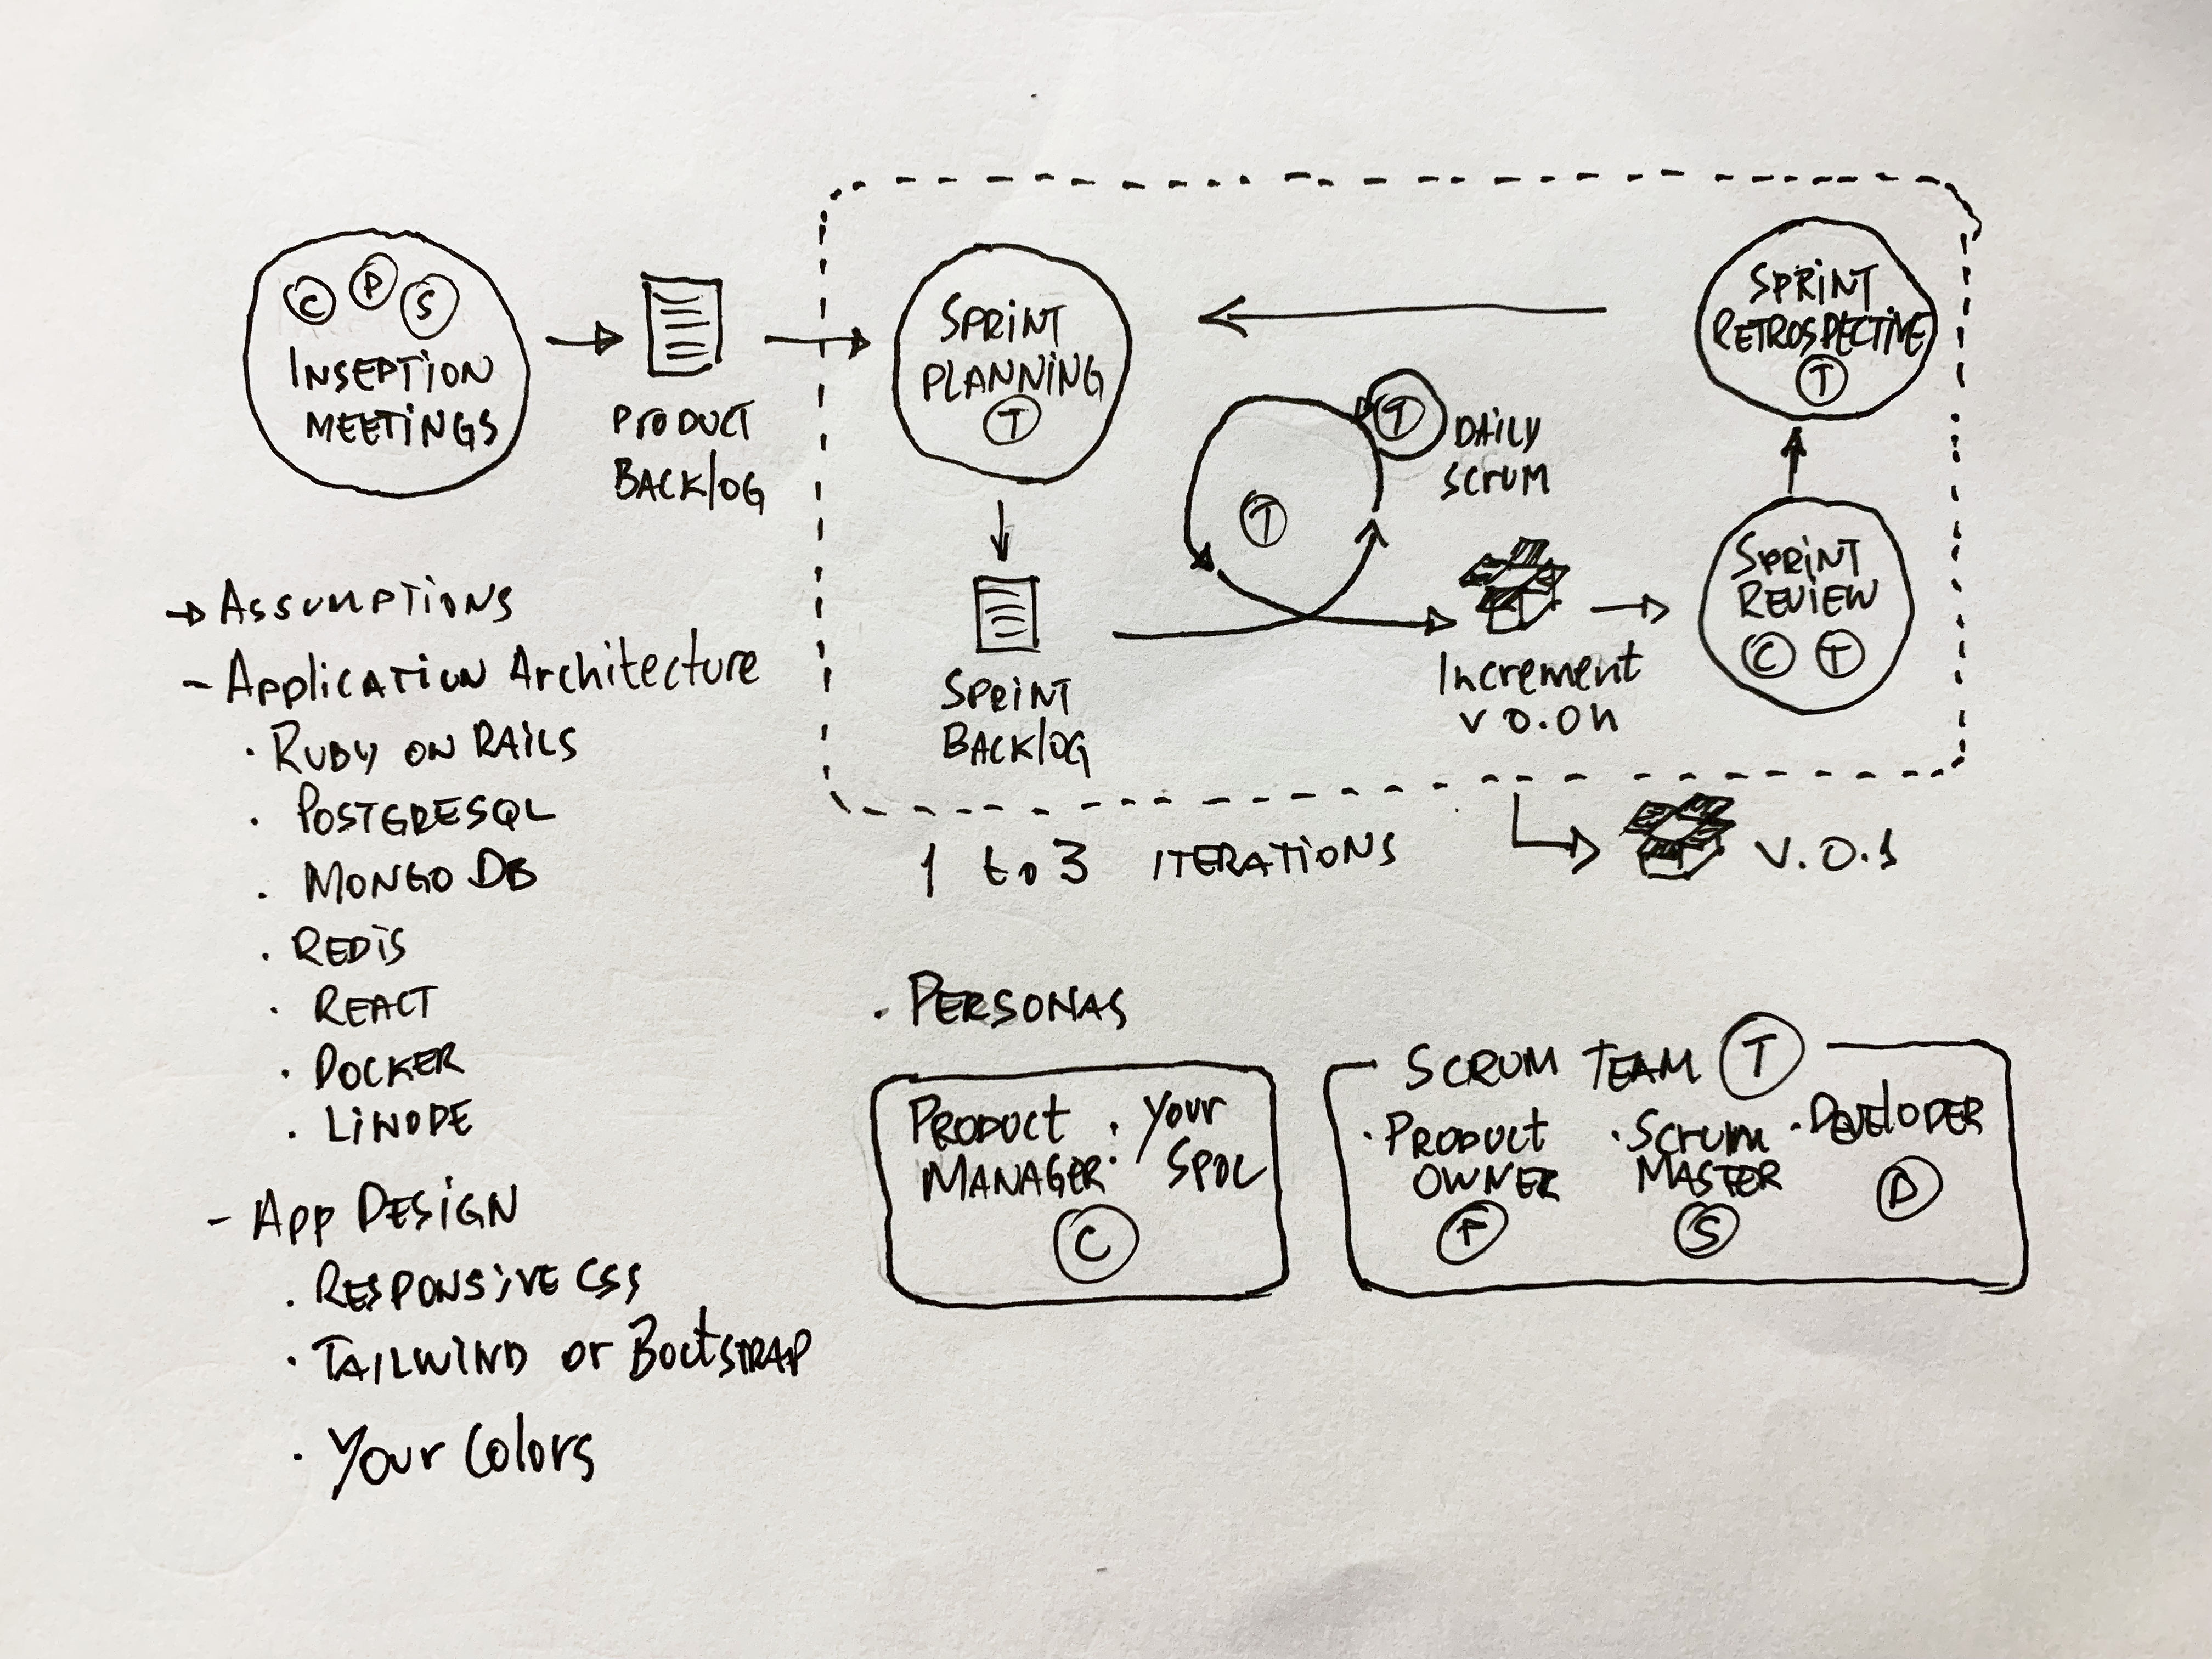 C P S
INSEPTION
MEETINGS
PRODUCT
BACKLOG
SPRINT
PLANNING
T
SPRINT
BACKLOG
T
T
DAILY
SCRUM
Increment
v 0.0n
SPRINT
REVIEW
C T
SPRINT
RETROSPECTIVE
T
1 to 3 ITERATIONS
V.0.1
→ ASSUMPTIONS
- APPLICATION Architecture
· RUBY ON RAILS
· POSTGRESQL
· MONGO DB
· REDIS
· REACT
· DOCKER
· LINODE
- App DESIGN
· RESPONSIVE CSS
· TAILWIND or BootSTRAP
· Your Colors
· PERSONAS
PRODUCT : Your
MANAGER: SPOC
C
SCRUM TEAM T
· PRODUCT
OWNER
P
· SCRUM
MASTER
S
· DEVELOPER
D